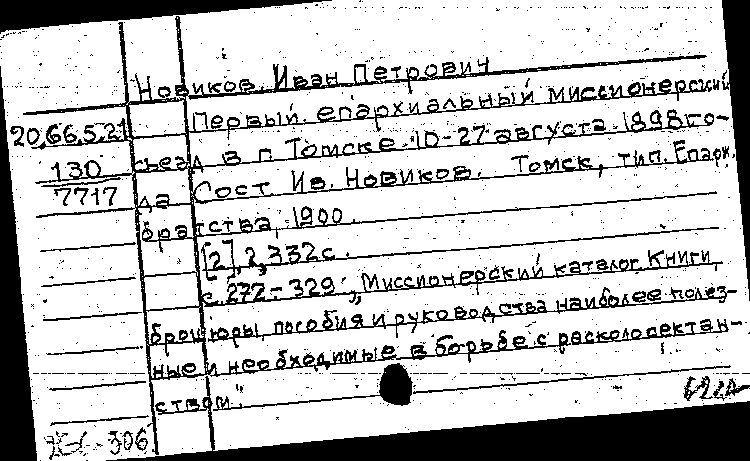 Новиков, Иван Петрович
Первый епархиальный миссионерский
20.66.5.21
съезд в г. Томске 10-27 августа 1898 го-
130
7717
да Сост Ив. Новиков. Томск, тип. Епарх.
братства, 1900.
[2], 2, 332 с.
с. 272-329: „Миссионерский каталог. Книги,
брошюры, пособия и руководства наиболее полез-
ные и необходимые в борьбе с расколосектан-
ством."
-306